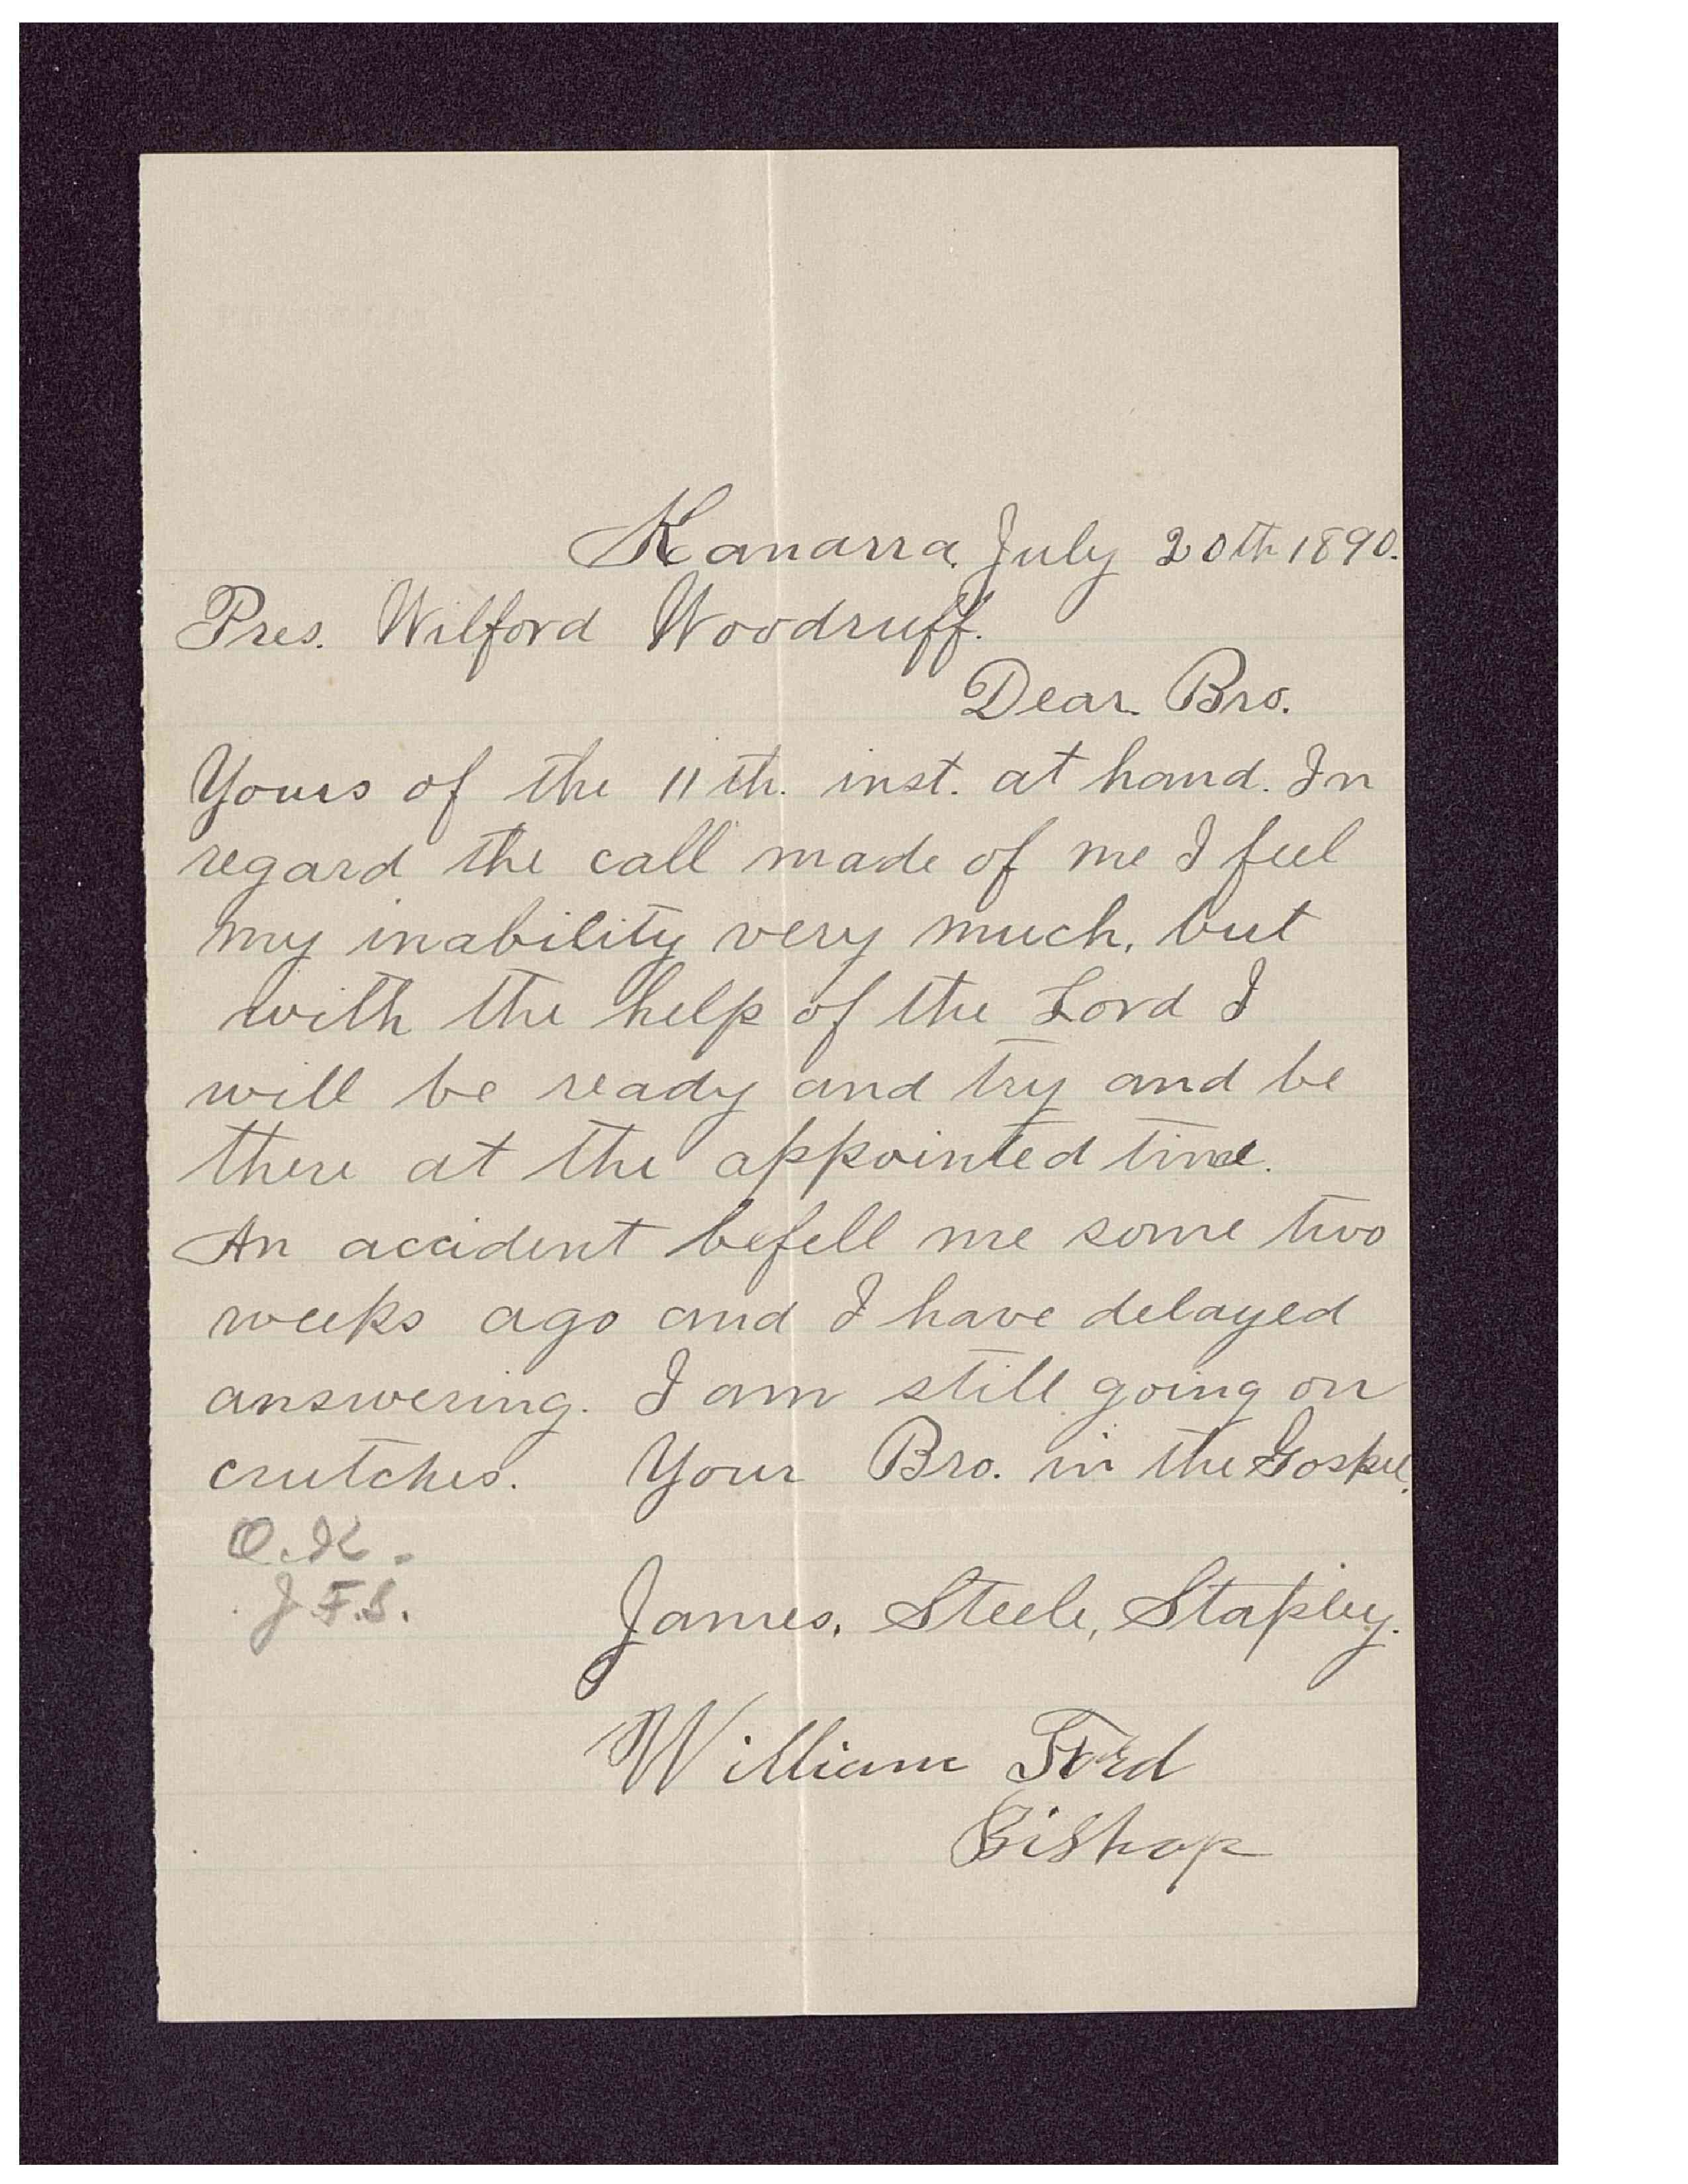 Kanarra, July 20th 1890.
Pres. Wilford Woodruff.
Dear Bro.
Yours of the 11th. inst. at hand. In
regard the call made of me I feel
my inability very much, but
with the help of the Lord I
will be ready and try and be
there at the appointed time.
An accident befell me some two
weeks ago and I have delayed
answering. I am still going on
crutches. Your Bro. in the Gospel.
O.K.
J.F.S.
James, Steele, Stapley.
William Ford
Bishop